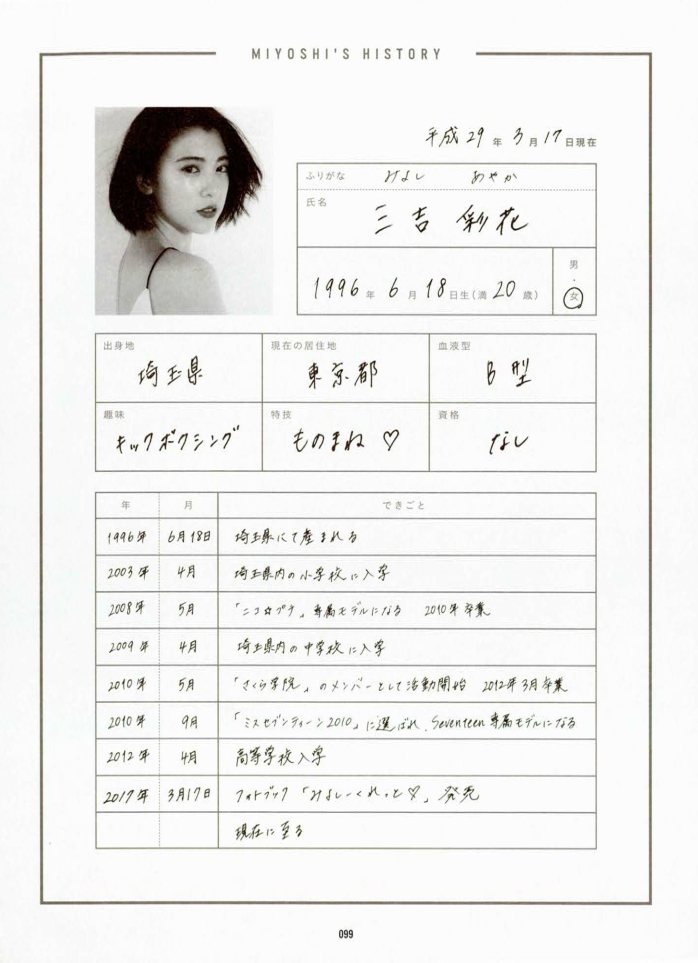 MIYOSHI'S HISTORY
平成 29 年 3 月 17 日現在
ふりがな みよし あやか
氏名
三吉 彩花
1996 年 6 月 18 日生(満 20 歳)
男
・
女
出身地 現在の居住地 血液型
埼玉県 東京都 B型
趣味 特技 資格
キックボクシング ものまね♡ なし
年 月 できごと
1996年 6月18日 埼玉県にて産まれる
2003年 4月 埼玉県内の小学校に入学
2008年 5月 「ニコ☆プチ」専属モデルになる 2010年卒業
2009年 4月 埼玉県内の中学校に入学
2010年 5月 「さくら学院」のメンバーとして活動開始 2012年3月卒業
2010年 9月 「ミスセブンティーン2010」に選ばれ、Seventeen専属モデルになる
2012年 4月 高等学校入学
2017年 3月17日 フォトブック「みよしーくれっと♡」発売
現在に至る
099